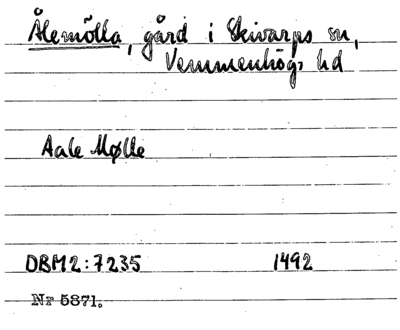 Ålemölla, gård i Skivarps sn,
Vemmenhögs hd
Aale Mølle
DBM2:7235 1492
Nr 5871.